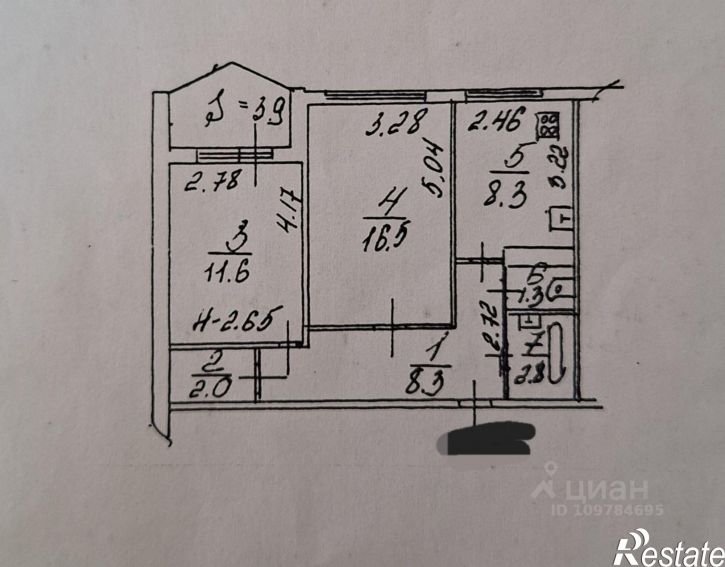 S = 3.9
2.78
4.17
3
11.6
H-2.65
2
2.0
3.28
5.04
4
16.5
2.46
5
8.3
3.22
6
1.3
2.72
7
2.8
1
8.3
циан
ID 109784695
Restate